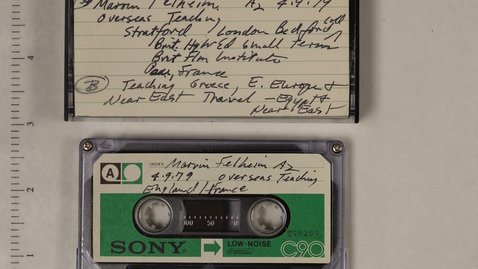 Marvin Felheim A2 4.9.79
Overseas Teaching
Stratford / London Bedford Coll
Brit. Higher Ed Small Term
Brit Film Institute
France
B Teaching Greece, E. Europe +
Near East Travel - Egypt +
Near East
4
3
2
1
A INDEX Marvin Felheim A2
4.9.79 Overseas Teaching
England/France
100 50 0
SONY LOW-NOISE C90